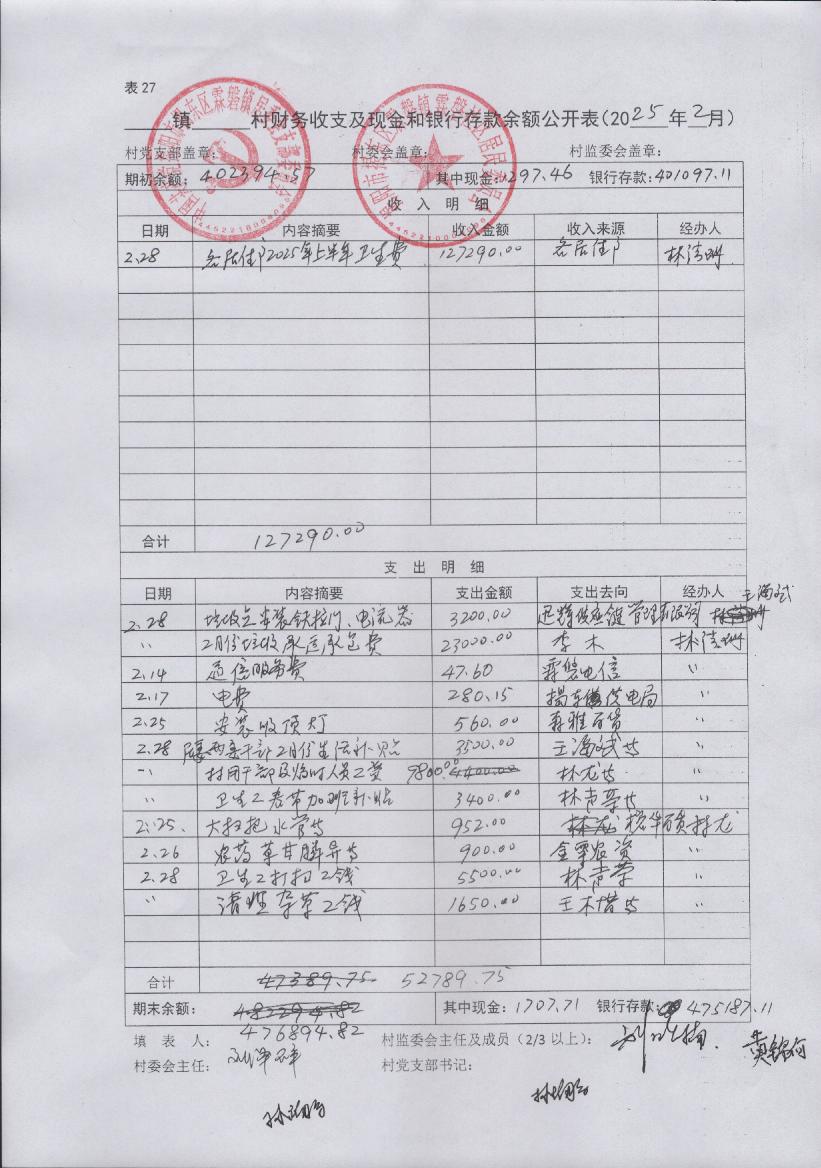 表27
镇 村财务收支及现金和银行存款余额公开表(2025年2月)
村党支部盖章: 村委会盖章: 村监委会盖章:
期初余额: 402394.57 其中现金: 1297.46 银行存款: 401097.11
收 入 明 细
日期 内容摘要 收入金额 收入来源 经办人
2.28 各居住户2025年上半年卫生费 127290.00 各居住户 林洁珊
合计 127290.00
支 出 明 细
日期 内容摘要 支出金额 支出去向 经办人
王海斌
2.28 垃圾点安装铁拉门、电流器 3200.00 迅特供应链管理有限公司
〃 2月份垃圾承运承包费 23000.00 李木 林洁珊
2.14 通信服务费 47.60 霖磐电信 〃
2.17 电费 280.15 揭东供电局 〃
2.25 安装吸顶灯 560.00 森雅百货 〃
2.28 两委干部2月份生活补贴 3500.00 王海斌等 〃
〃 村用干部及临时人员工资 9800.00 4400.00 林龙等 〃
〃 卫生工春节加班补贴 3400.00 林声荣等 〃
2.25. 大扫把水管等 952.00 百货林龙 〃
2.26 农药草甘膦异等 900.00 金丰农资 〃
2.28 卫生工打扫工钱 5500.00 林声荣 〃
〃 清理杂草工钱 1650.00 王木惜等 〃
合计 47389.75 52789.75
期末余额: 482294.82 其中现金: 1707.71 银行存款: 475187.11
476894.82
填 表 人: 村监委会主任及成员(2/3以上):
村委会主任: 村党支部书记: